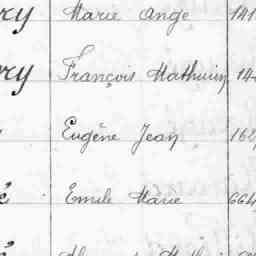 ry Marie Ange 141
ry François Mathurin 14
Eugène Jean 16
é Emile Marie 664
é